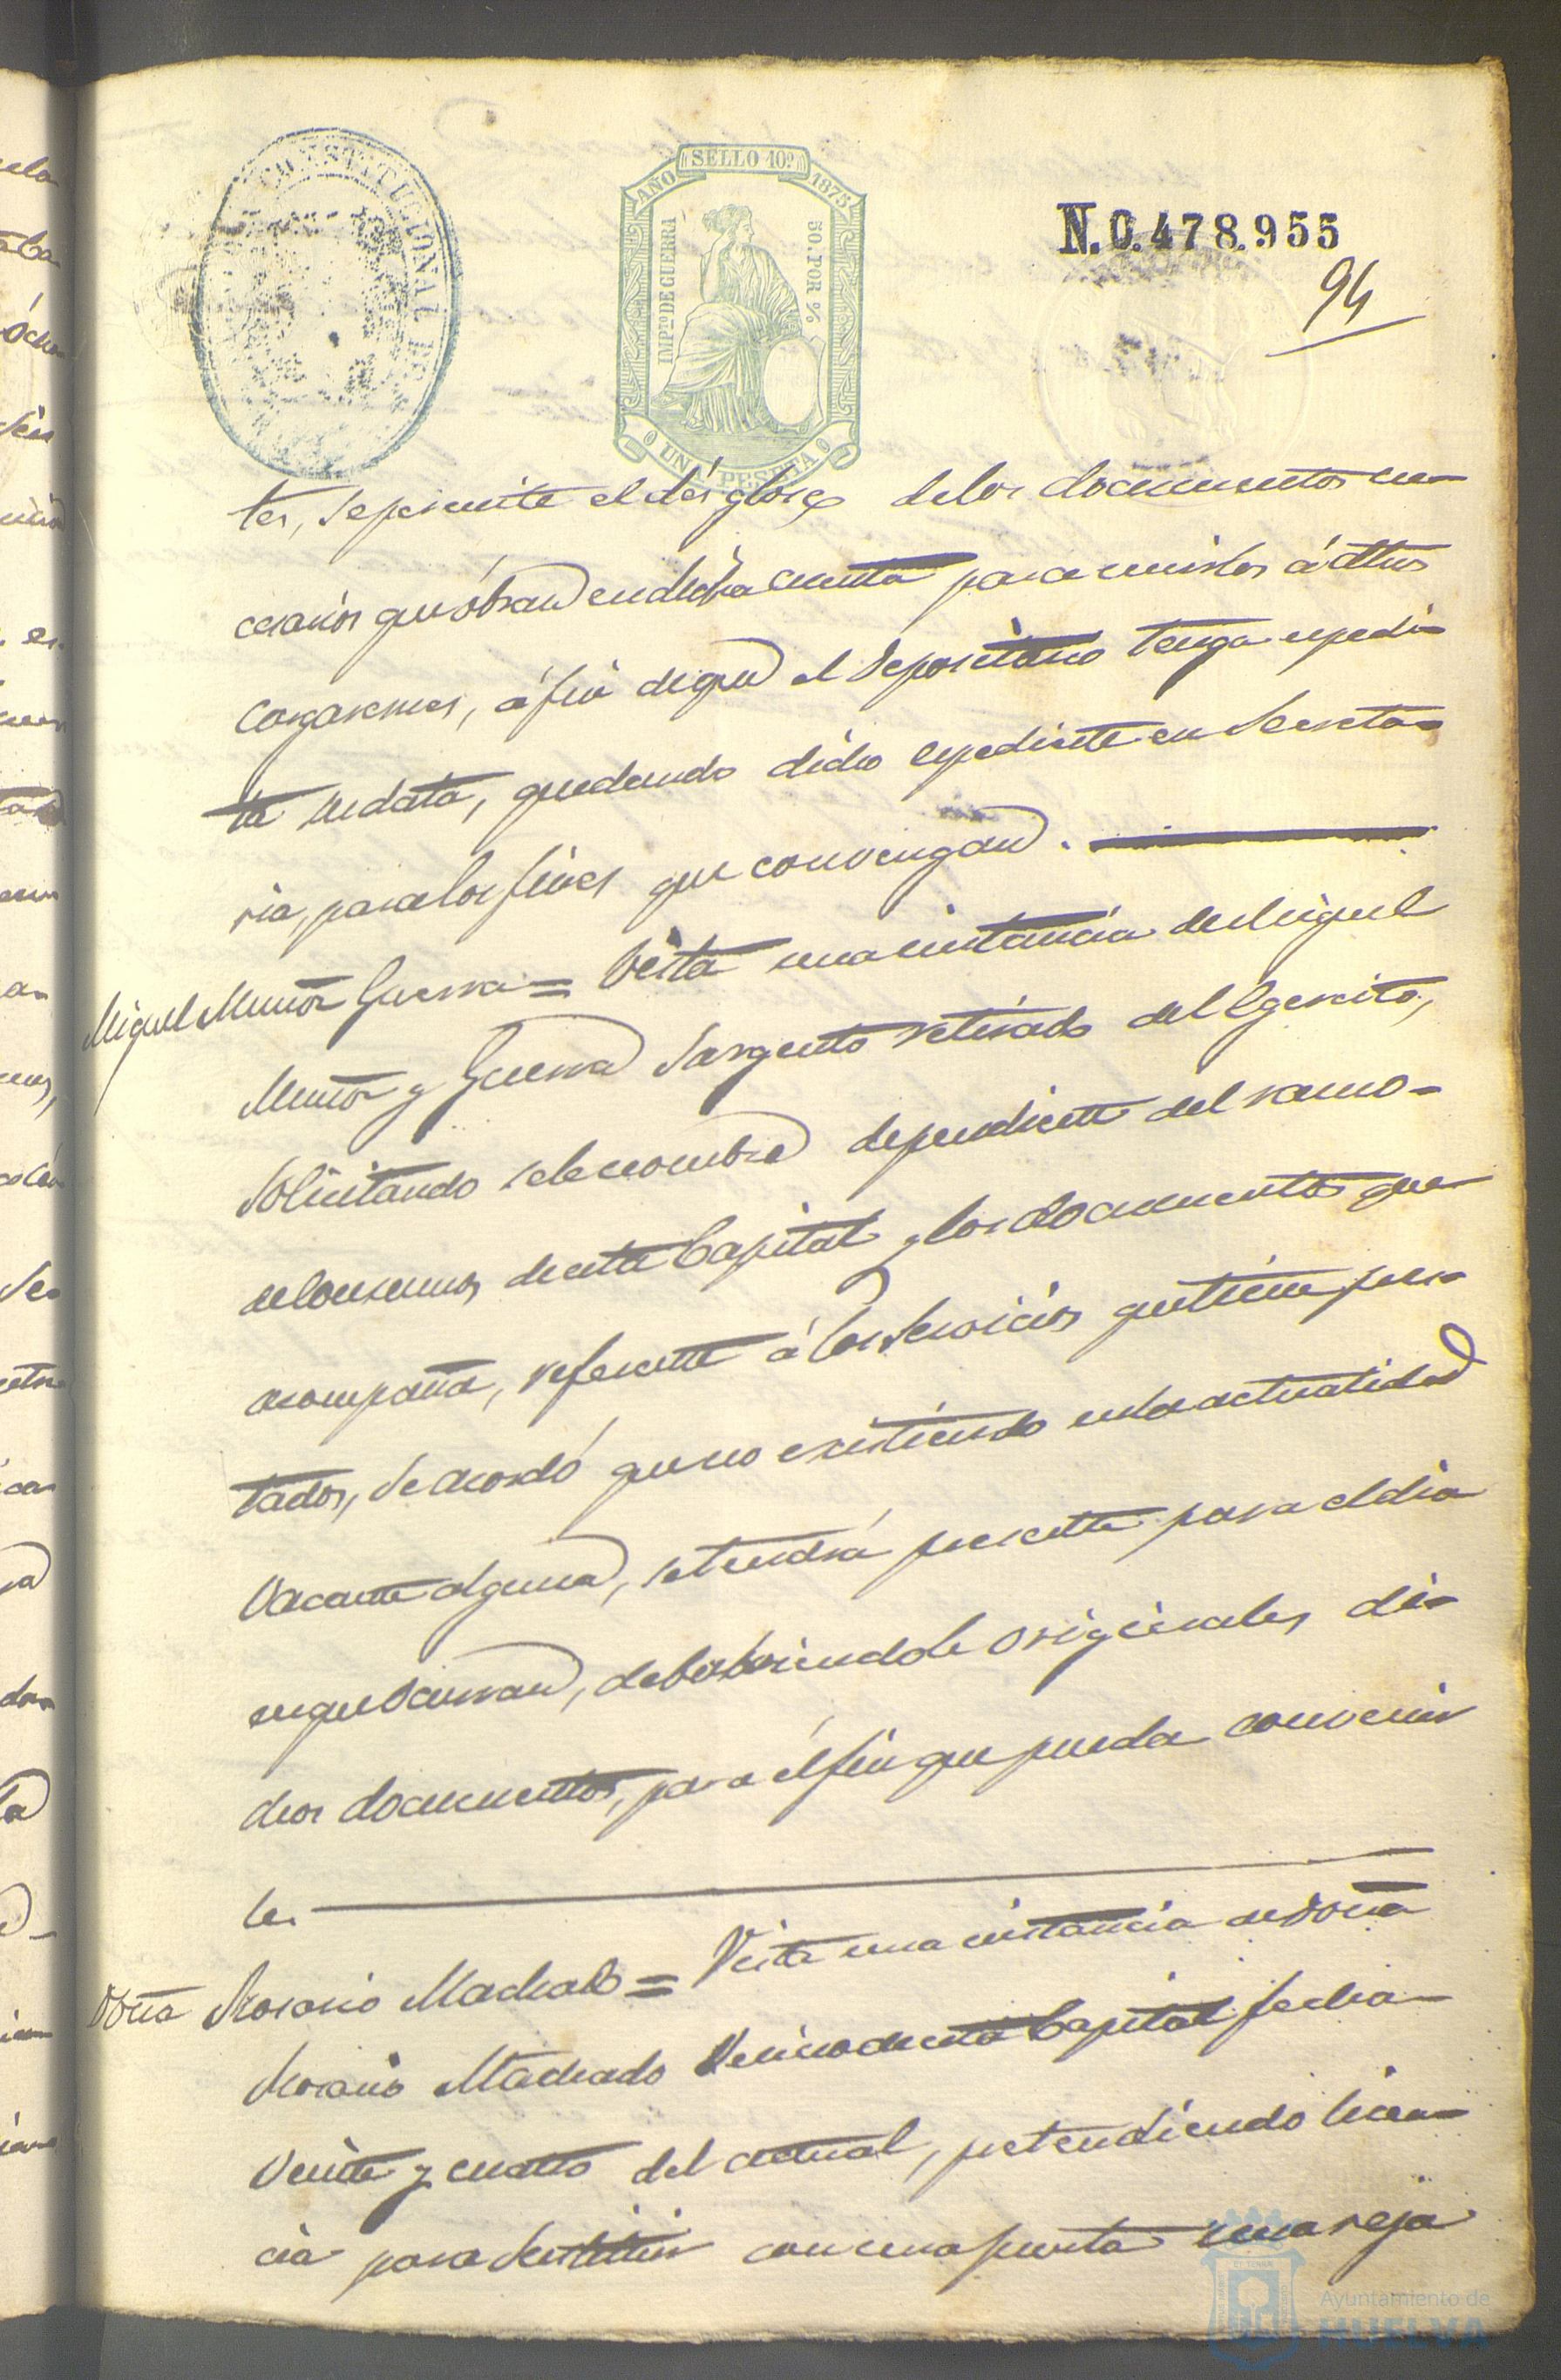 CONSTITUCIONAL DE
SELLO 10º
AÑO 1875
IMPTO DE GUERRA
50. POR %
UNA PESETA
N. 0.478.955
94
tes, se permite el desglose de los documentos ne-
cesarios que óbran en dicha cuenta para unirlos á otros
cargaremes, á fin de que el Depositario tenga espedi-
ta su data, quedando dicho espediente en Secreta-
ria, para los fines que convengan.
Miguel Muñoz Guerra = Vista una instancia de Miguel
Muñoz y Guerra Sargento retirado del Egercito,
Solicitando se le nombre dependiente del ramo
de Consumos de esta Capital y los documentos que
acompaña, referente á los Servicios que tiene pres-
tados, Se acordó que no existiendo en la actualidad
Vacante alguna, se tendrá presente para el dia
en que ocurran, debolviendole originales di-
chos documentos, para él fin que pueda convenir
le.
Doña Rosario Machado = Vista una instancia de Doña
Rosario Machado Vecina de esta Capital fecha
Veinte y cuatro del actual, pretendiendo licen-
cia para Sustituir con una puerta una reja
Ayuntamiento de
HUELVA